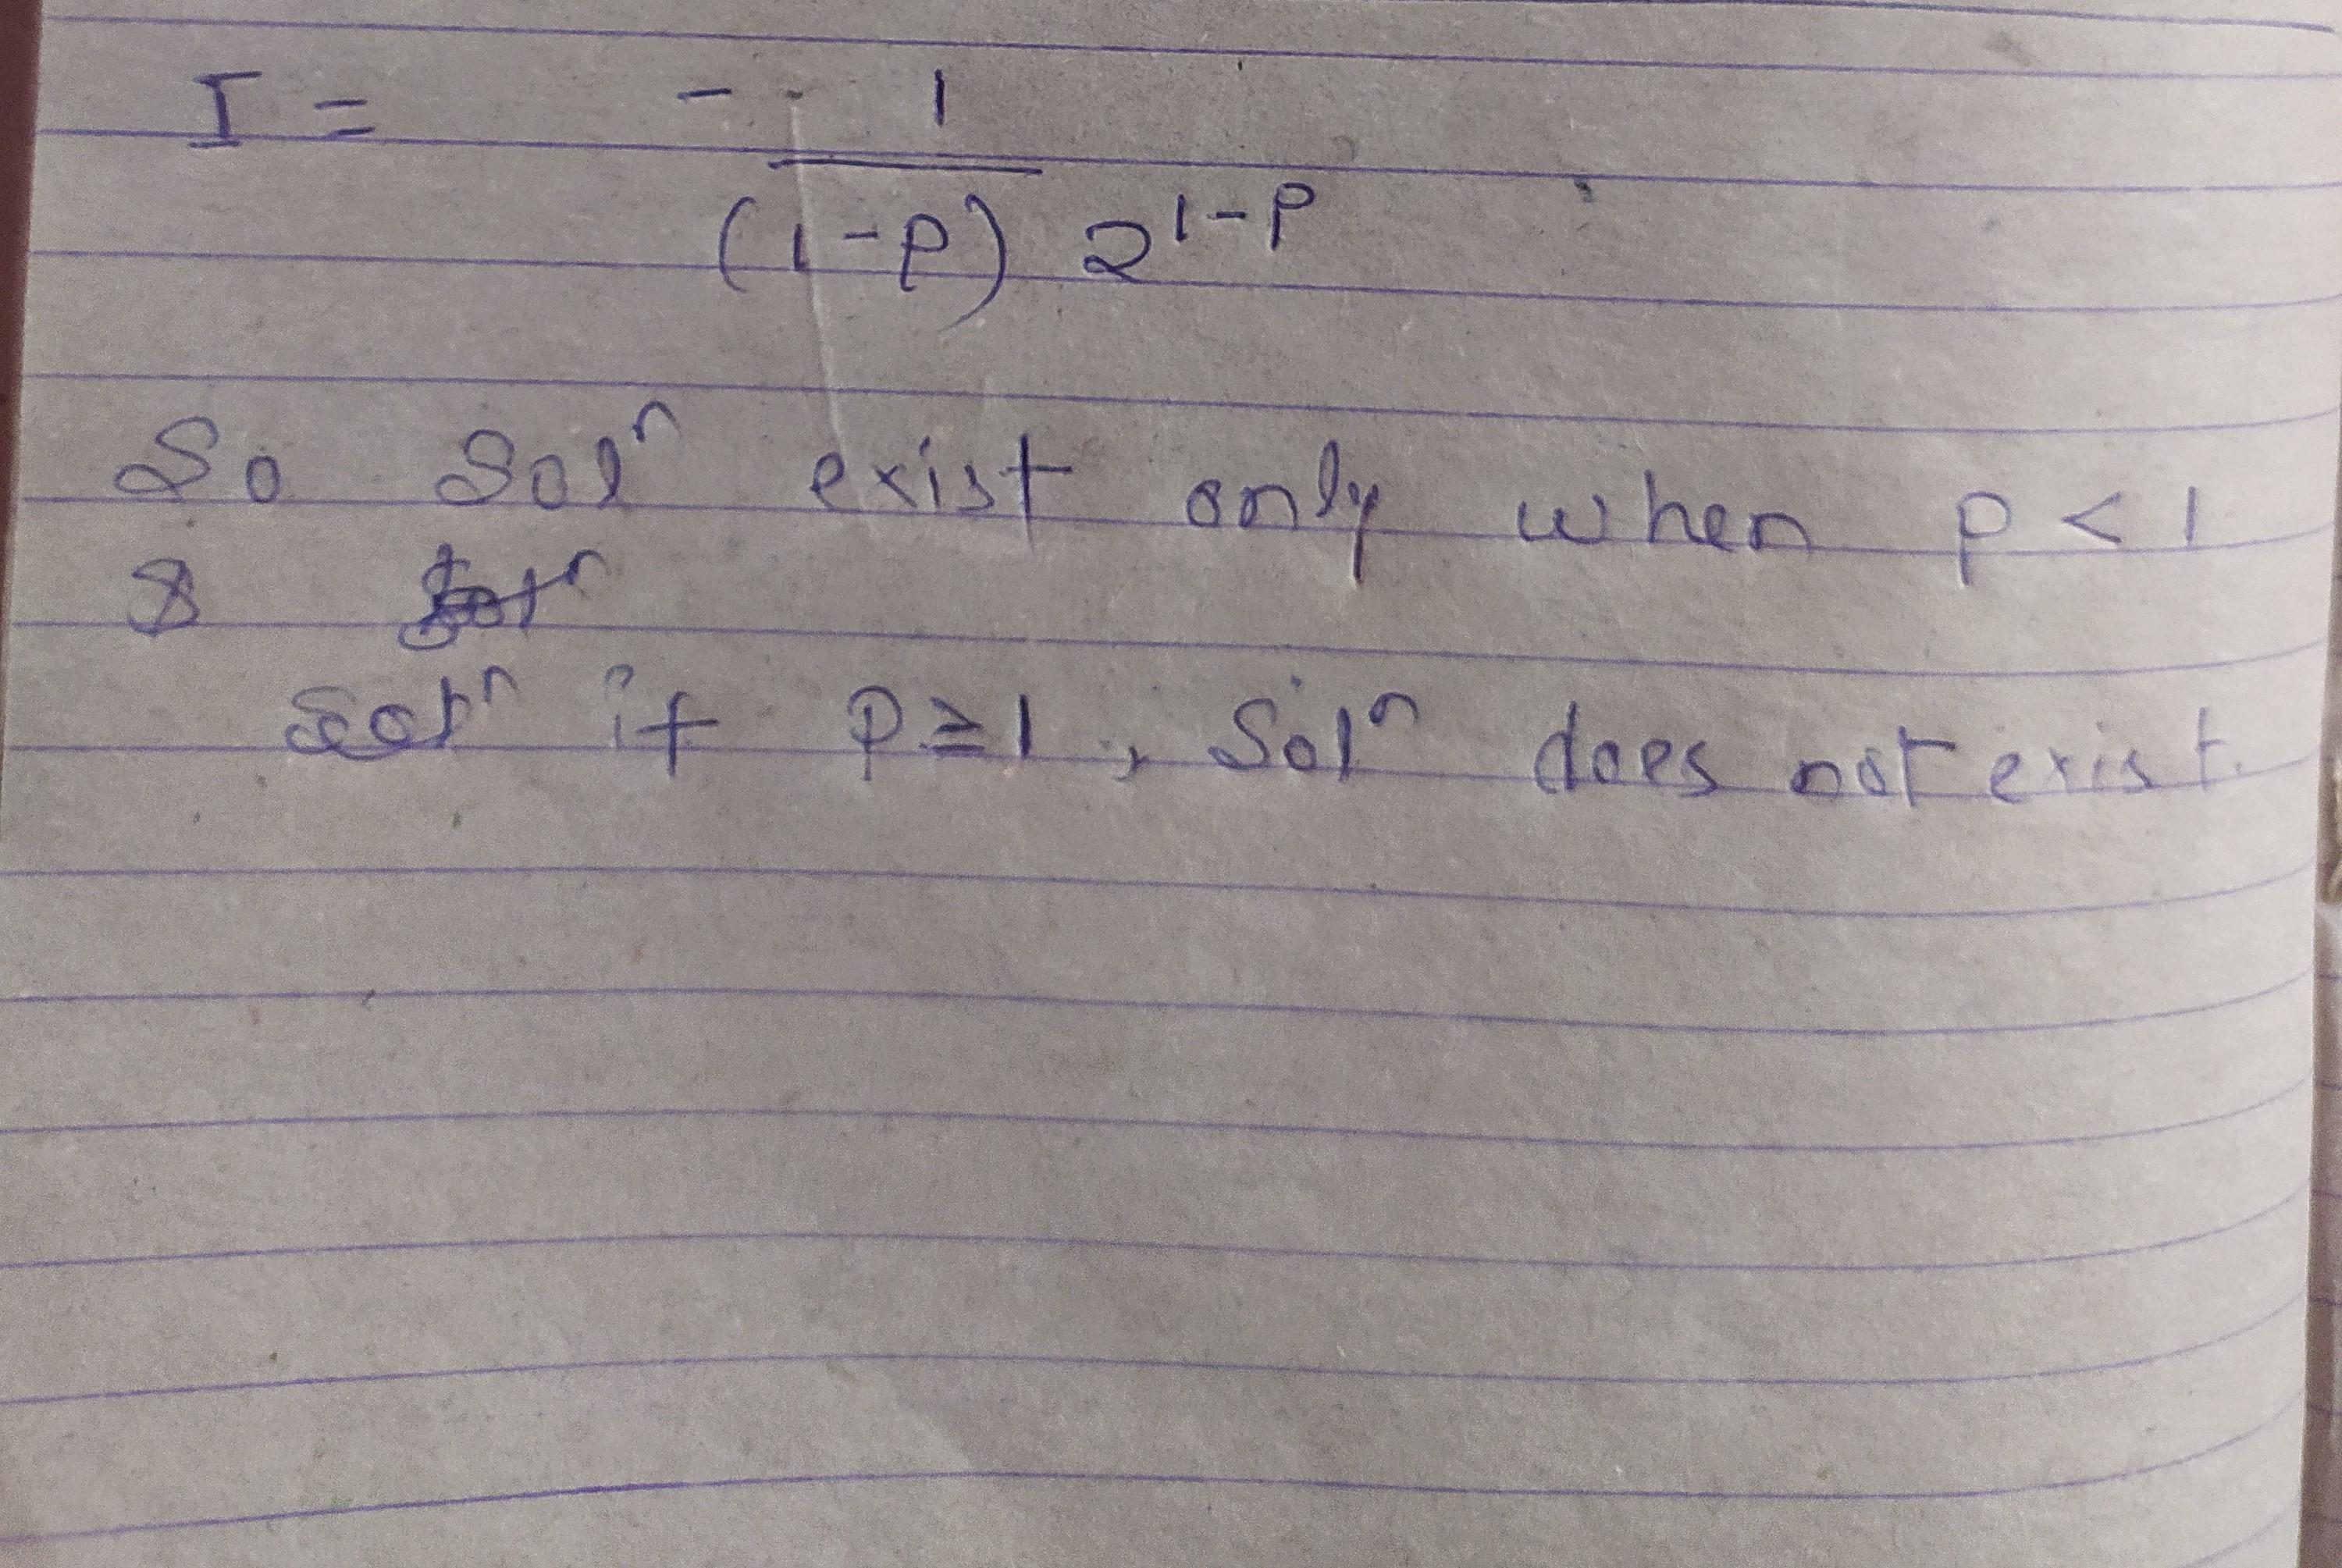 I = - 1 / (1-P) 2^{1-P}
So Solⁿ exist only when P < 1
& Solⁿ
Solⁿ if P ≥ 1, Solⁿ does not exist.